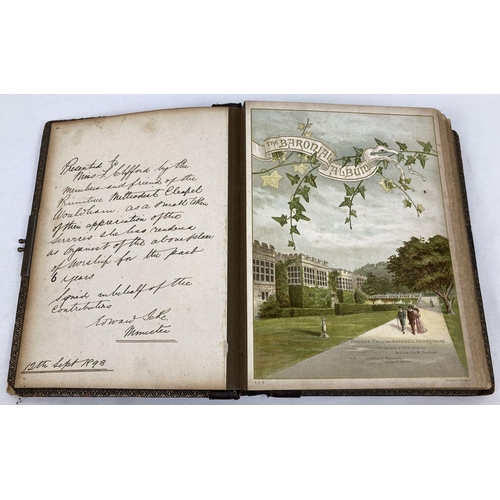 Presented to
Miss L Clifford by the
Members and friends of the
Primitive Methodist Chapel
Wouldham as a small token
of their appreciation of the
services she has rendered
as organist of the above place
of worship for the past
6 years
Signed on behalf of the
Contributors
Edward
Minister
12th Sept 1898
THE BARONIAL
ALBUM
HADDON HALL, NR BAKEWELL, DERBYSHIRE